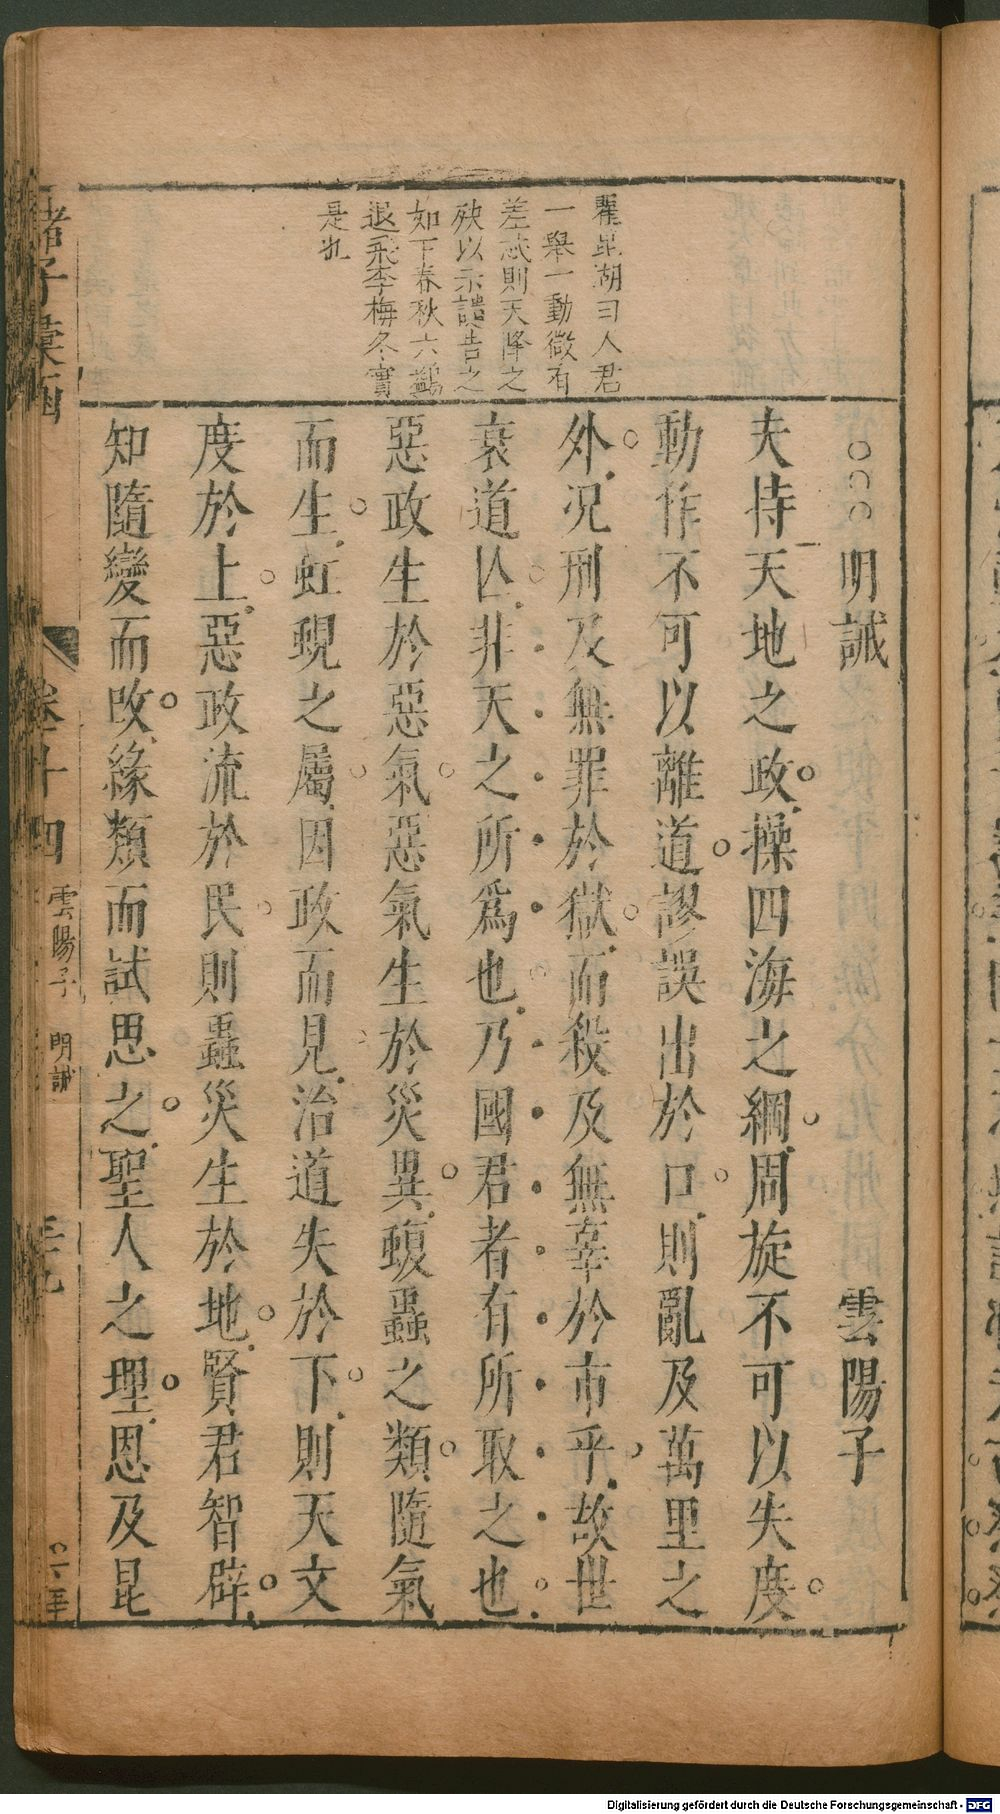 明誡 雲陽子
夫持天地之政操四海之綱周旋不可以失度
動作不可以離道謬誤出於口則亂及萬里之
外况刑及無罪於獄而殺及無辜於市乎故世
衰道亾非天之所爲也乃國君者有所取之也
惡政生於惡氣惡氣生於災異蝮蟲之類隨氣
而生虹蜺之屬因政而見治道失於下則天文
度於上惡政流於民則蟲災生於地賢君智辟
知隨變而改緣類而試思之聖人之理恩及昆
瞿昆湖曰人君
一舉一動微有
差忒則天降之
殃以示譴告之
如下春秋六鷁
退飛李梅冬實
是也
諸子彙函
卷十四
雲陽子 明誡
三十九
Digitalisierung gefördert durch die Deutsche Forschungsgemeinschaft - DFG